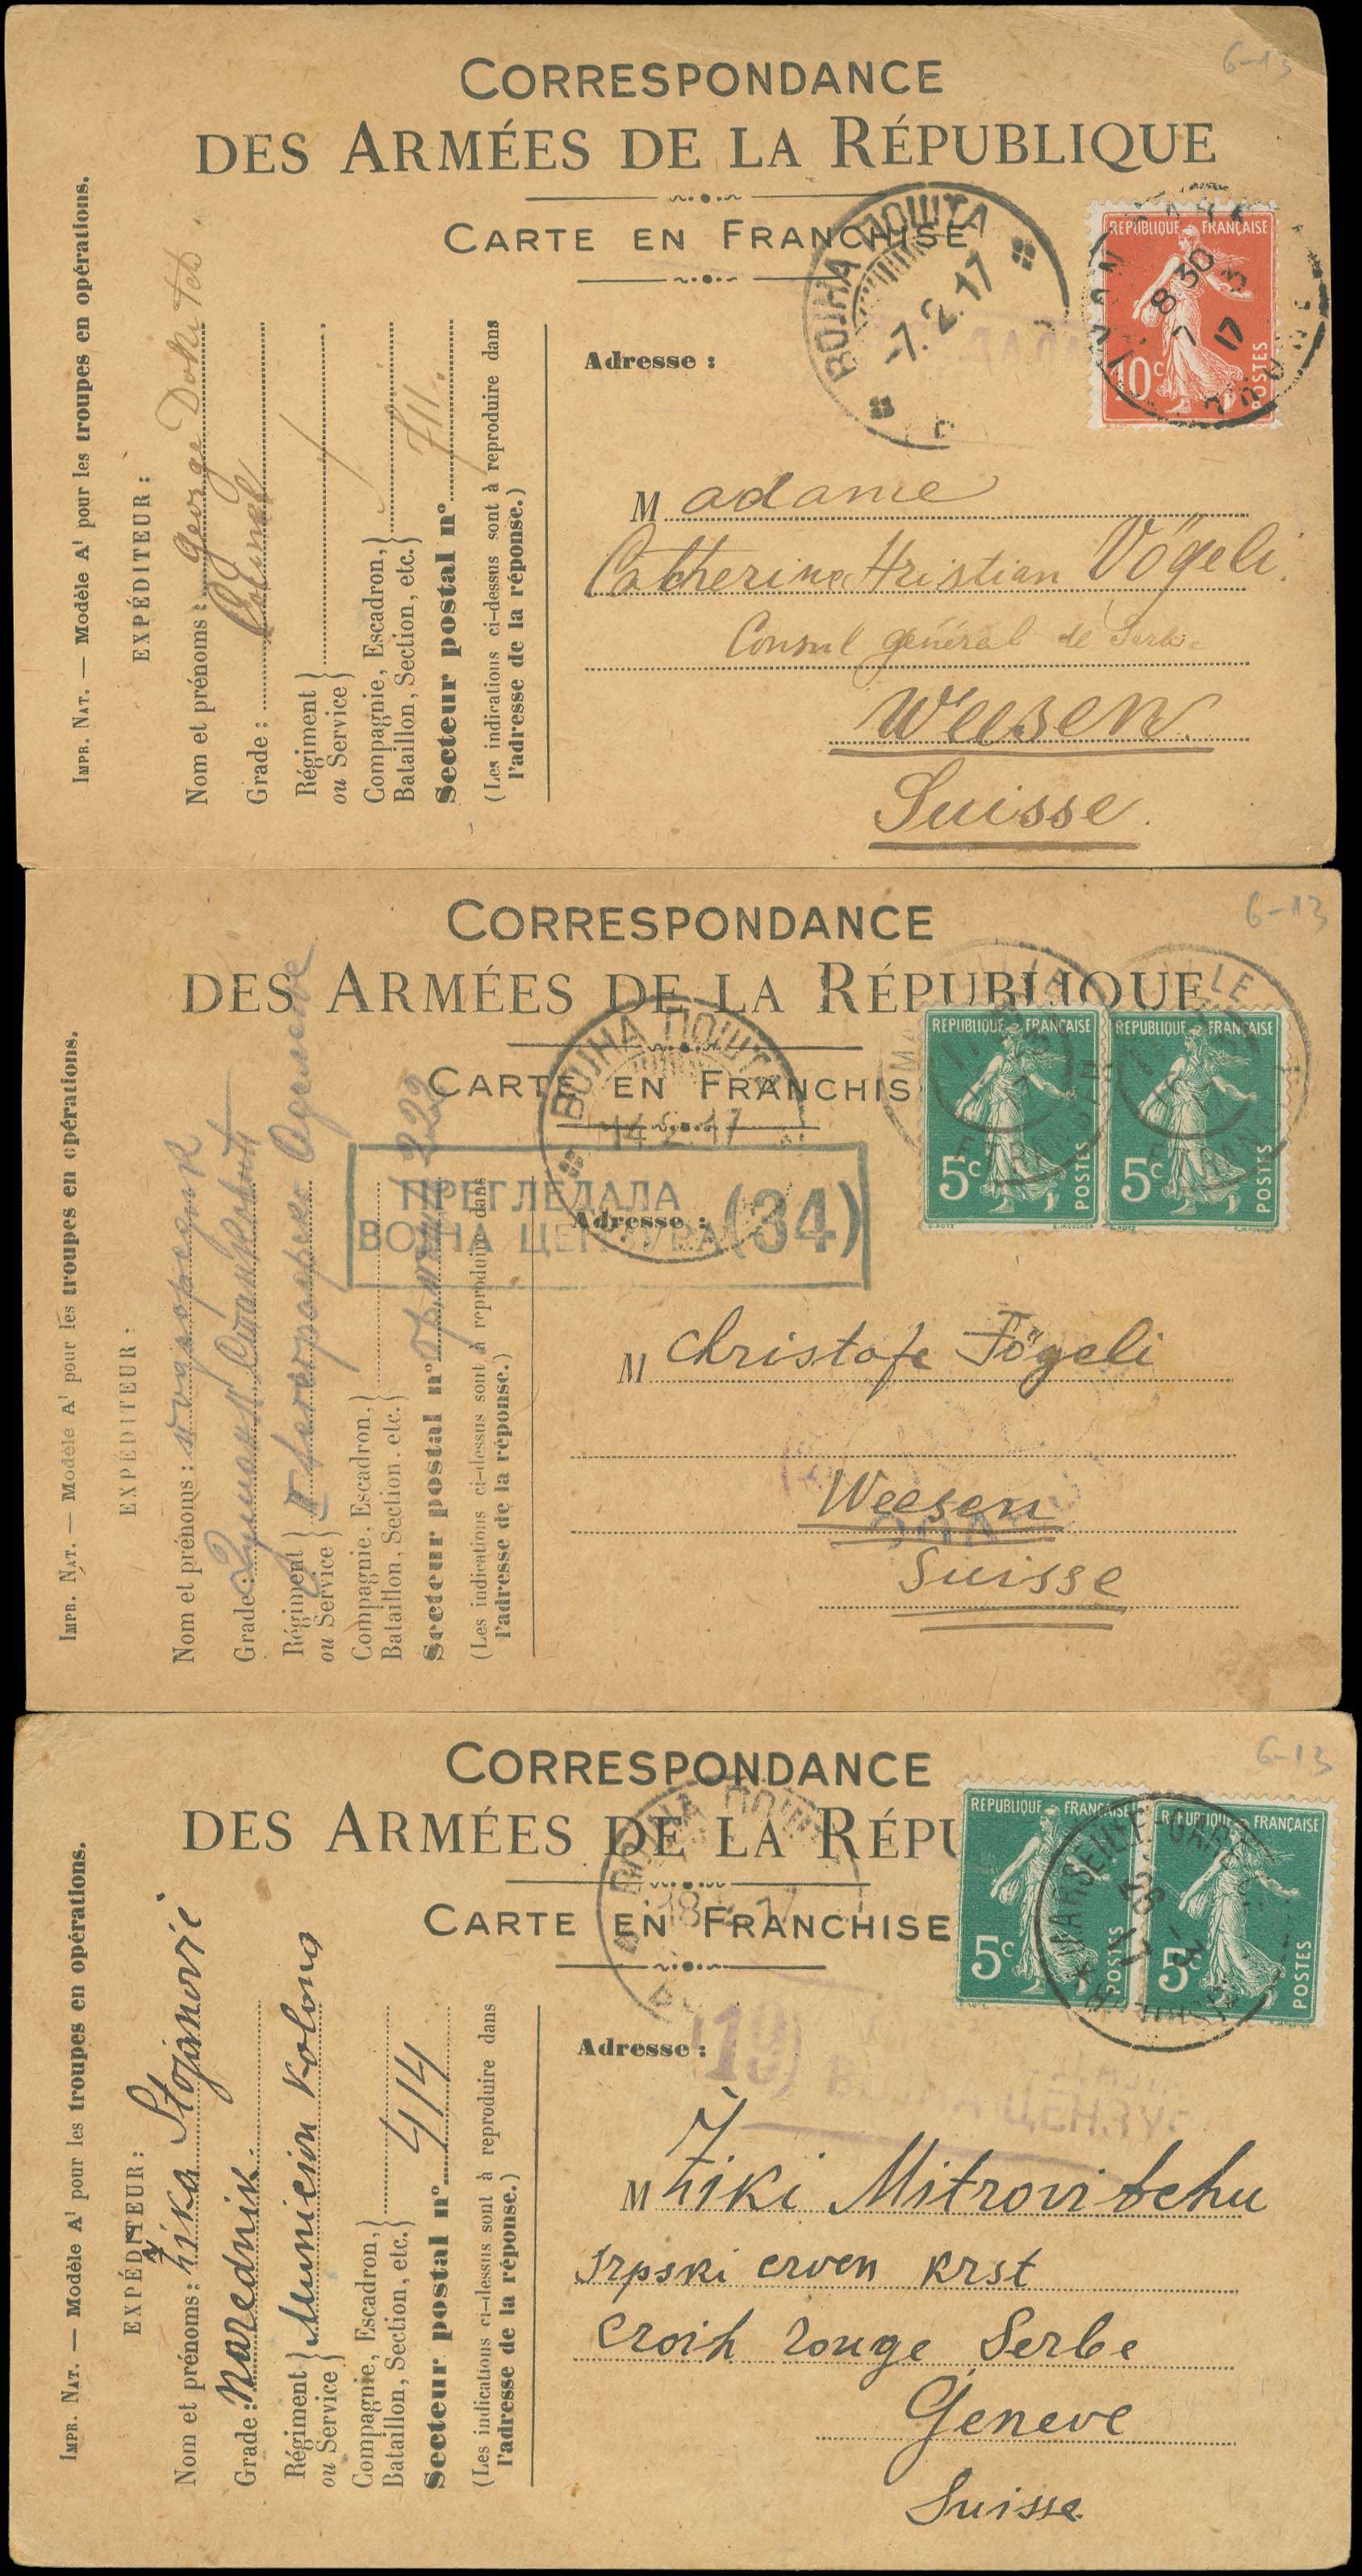 6-13
CORRESPONDANCE
DES ARMÉES DE LA RÉPUBLIQUE
CARTE EN FRANCHISE
ВОЈНА ПОШТА
-7.2.17
RÉPUBLIQUE FRANÇAISE
10c
POSTES
8 30
7 3
17
IMPR. NAT. — Modèle A1 pour les troupes en opérations.
EXPÉDITEUR :
Nom et prénoms : George Dokitch.
Grade : Colonel
Régiment
ou Service
Compagnie, Escadron,
Bataillon, Section, etc.
Secteur postal n° 711.
(Les indications ci-dessus sont à reproduire dans
l'adresse de la réponse.)
Adresse :
Madame
Catherine Hristian Vögeli.
Consul général de Serbie
Weesen.
Suisse.
6-13
CORRESPONDANCE
DES ARMÉES DE LA RÉPUBLIQUE
CARTE EN FRANCHIS
ВОЈНА ПОШТА
14 2 17
RÉPUBLIQUE FRANÇAISE
5c
POSTES
RÉPUBLIQUE FRANÇAISE
5c
POSTES
ПРЕГЛЕДАЛА
ВОЈНА ЦЕНЗУРА (34)
IMPR. NAT. — Modèle A1 pour les troupes en opérations.
EXPÉDITEUR :
Nom et prénoms :
Grade :
Régiment
ou Service
Compagnie, Escadron,
Bataillon, Section, etc.
Secteur postal n° 222
(Les indications ci-dessus sont à reproduire dans
l'adresse de la réponse.)
Adresse :
M Christofe Fögeli
Weesen
Suisse
6-13
CORRESPONDANCE
DES ARMÉES DE LA RÉPU
CARTE EN FRANCHISE
ВОЈНА ПОШТА
RÉPUBLIQUE FRANÇAISE
5c
POSTES
RÉPUBLIQUE FRANÇAISE
5c
POSTES
MARSEILLE GARE
IMPR. NAT. — Modèle A1 pour les troupes en opérations.
EXPÉDITEUR :
Nom et prénoms : Žika Stojanović
Grade : Narednik.
Régiment
ou Service
Municion Kolona
Compagnie, Escadron,
Bataillon, Section, etc.
Secteur postal n° 414
(Les indications ci-dessus sont à reproduire dans
l'adresse de la réponse.)
Adresse :
(19)
ВОЈНА ЦЕНЗУР
M Žiki Mitrovitchu
Srpski crven krst
Croih rouge Serbe
Geneve
Suisse